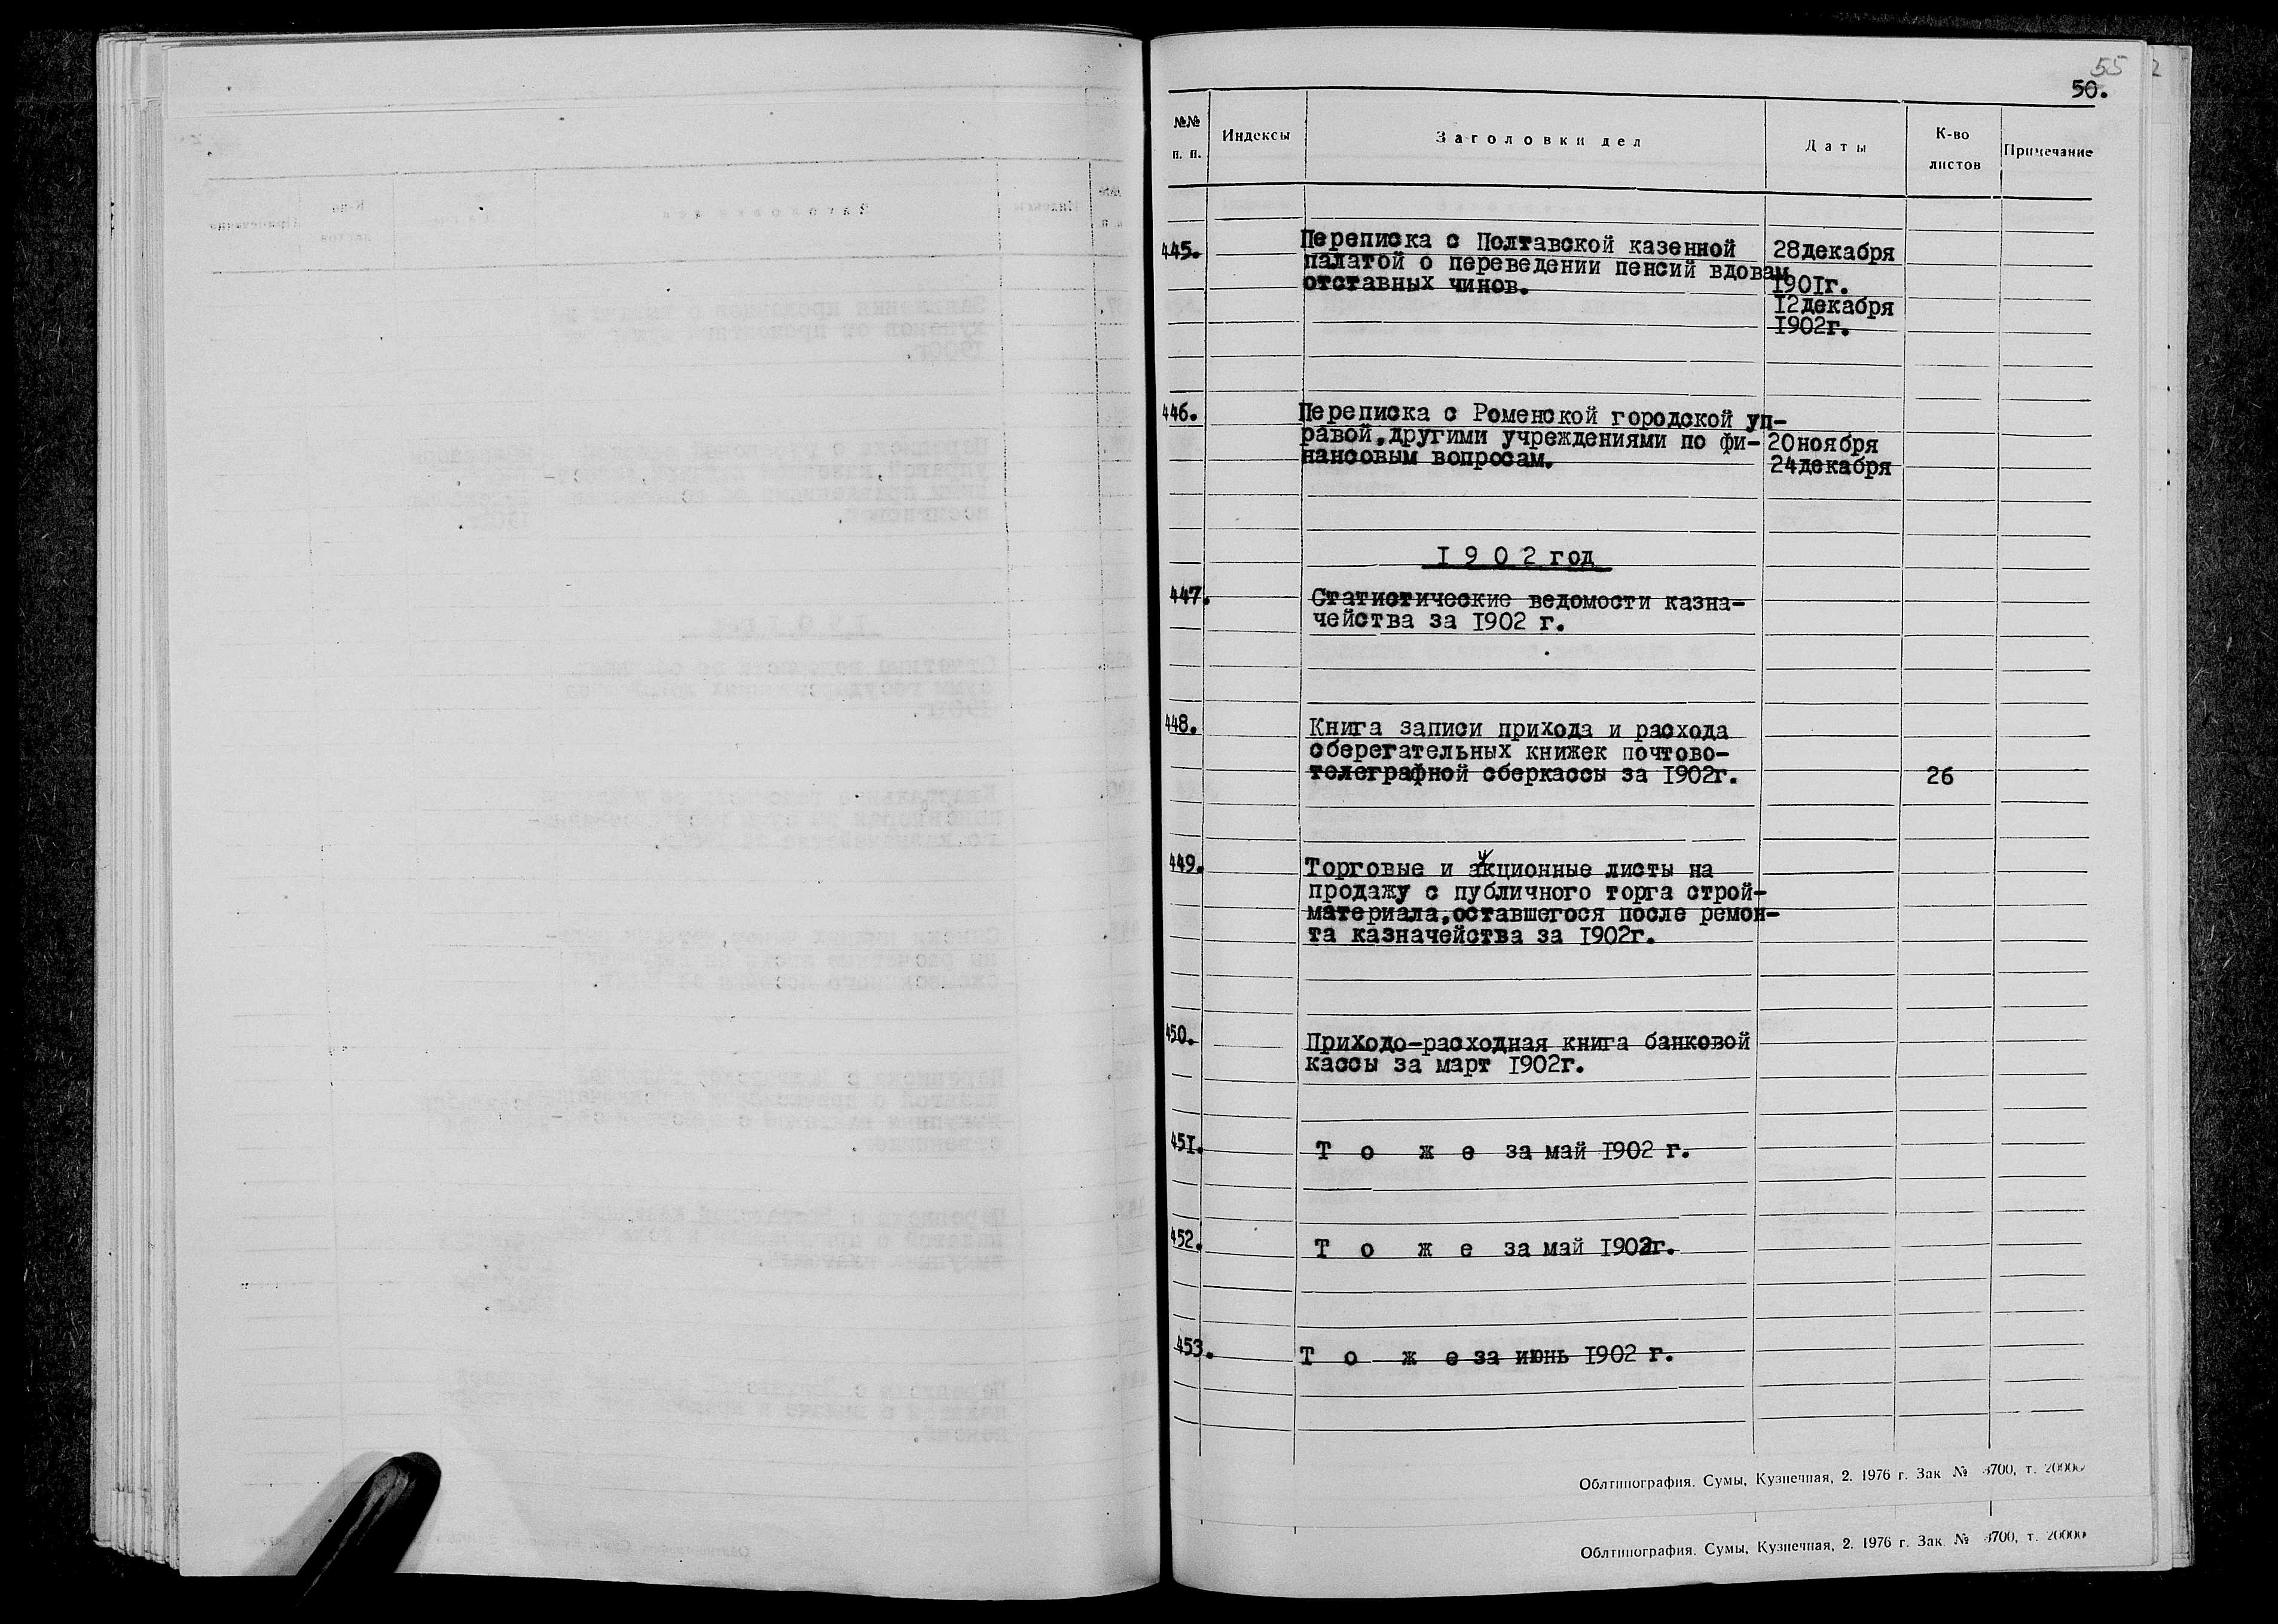 55
50.
№№ п. п.
Индексы
Заголовки дел
Даты
К-во листов
Примечание
445.
Переписка с Полтавской казенной
палатой о переведении пенсий вдовам
отставных чинов.
28декабря
1901г.
12декабря
1902г.
446.
Переписка с Роменской городской уп-
равой,другими учреждениями по фи-
нансовым вопросам.
20ноября
24декабря
1 9 0 2 год
447.
Статистические ведомости казна-
чейства за 1902 г.
448.
Книга записи прихода и расхода
сберегательных книжек почтово-
телеграфной сберкассы за 1902г.
26
449.
Торговые и аукционные листы на
продажу с публичного торга строй-
материала,оставшегося после ремон-
та казначейства за 1902г.
450.
Приходо-расходная книга банковой
кассы за март 1902г.
451.
Т о ж е за май 1902 г.
452.
Т о ж е за май 1902г.
453.
Т о ж е за июнь 1902 г.
Облтипография. Сумы, Кузнечная, 2. 1976 г. Зак. № 8700, т. 20000
Облтипография. Сумы, Кузнечная, 2. 1976 г. Зак. № 8700, т. 20000